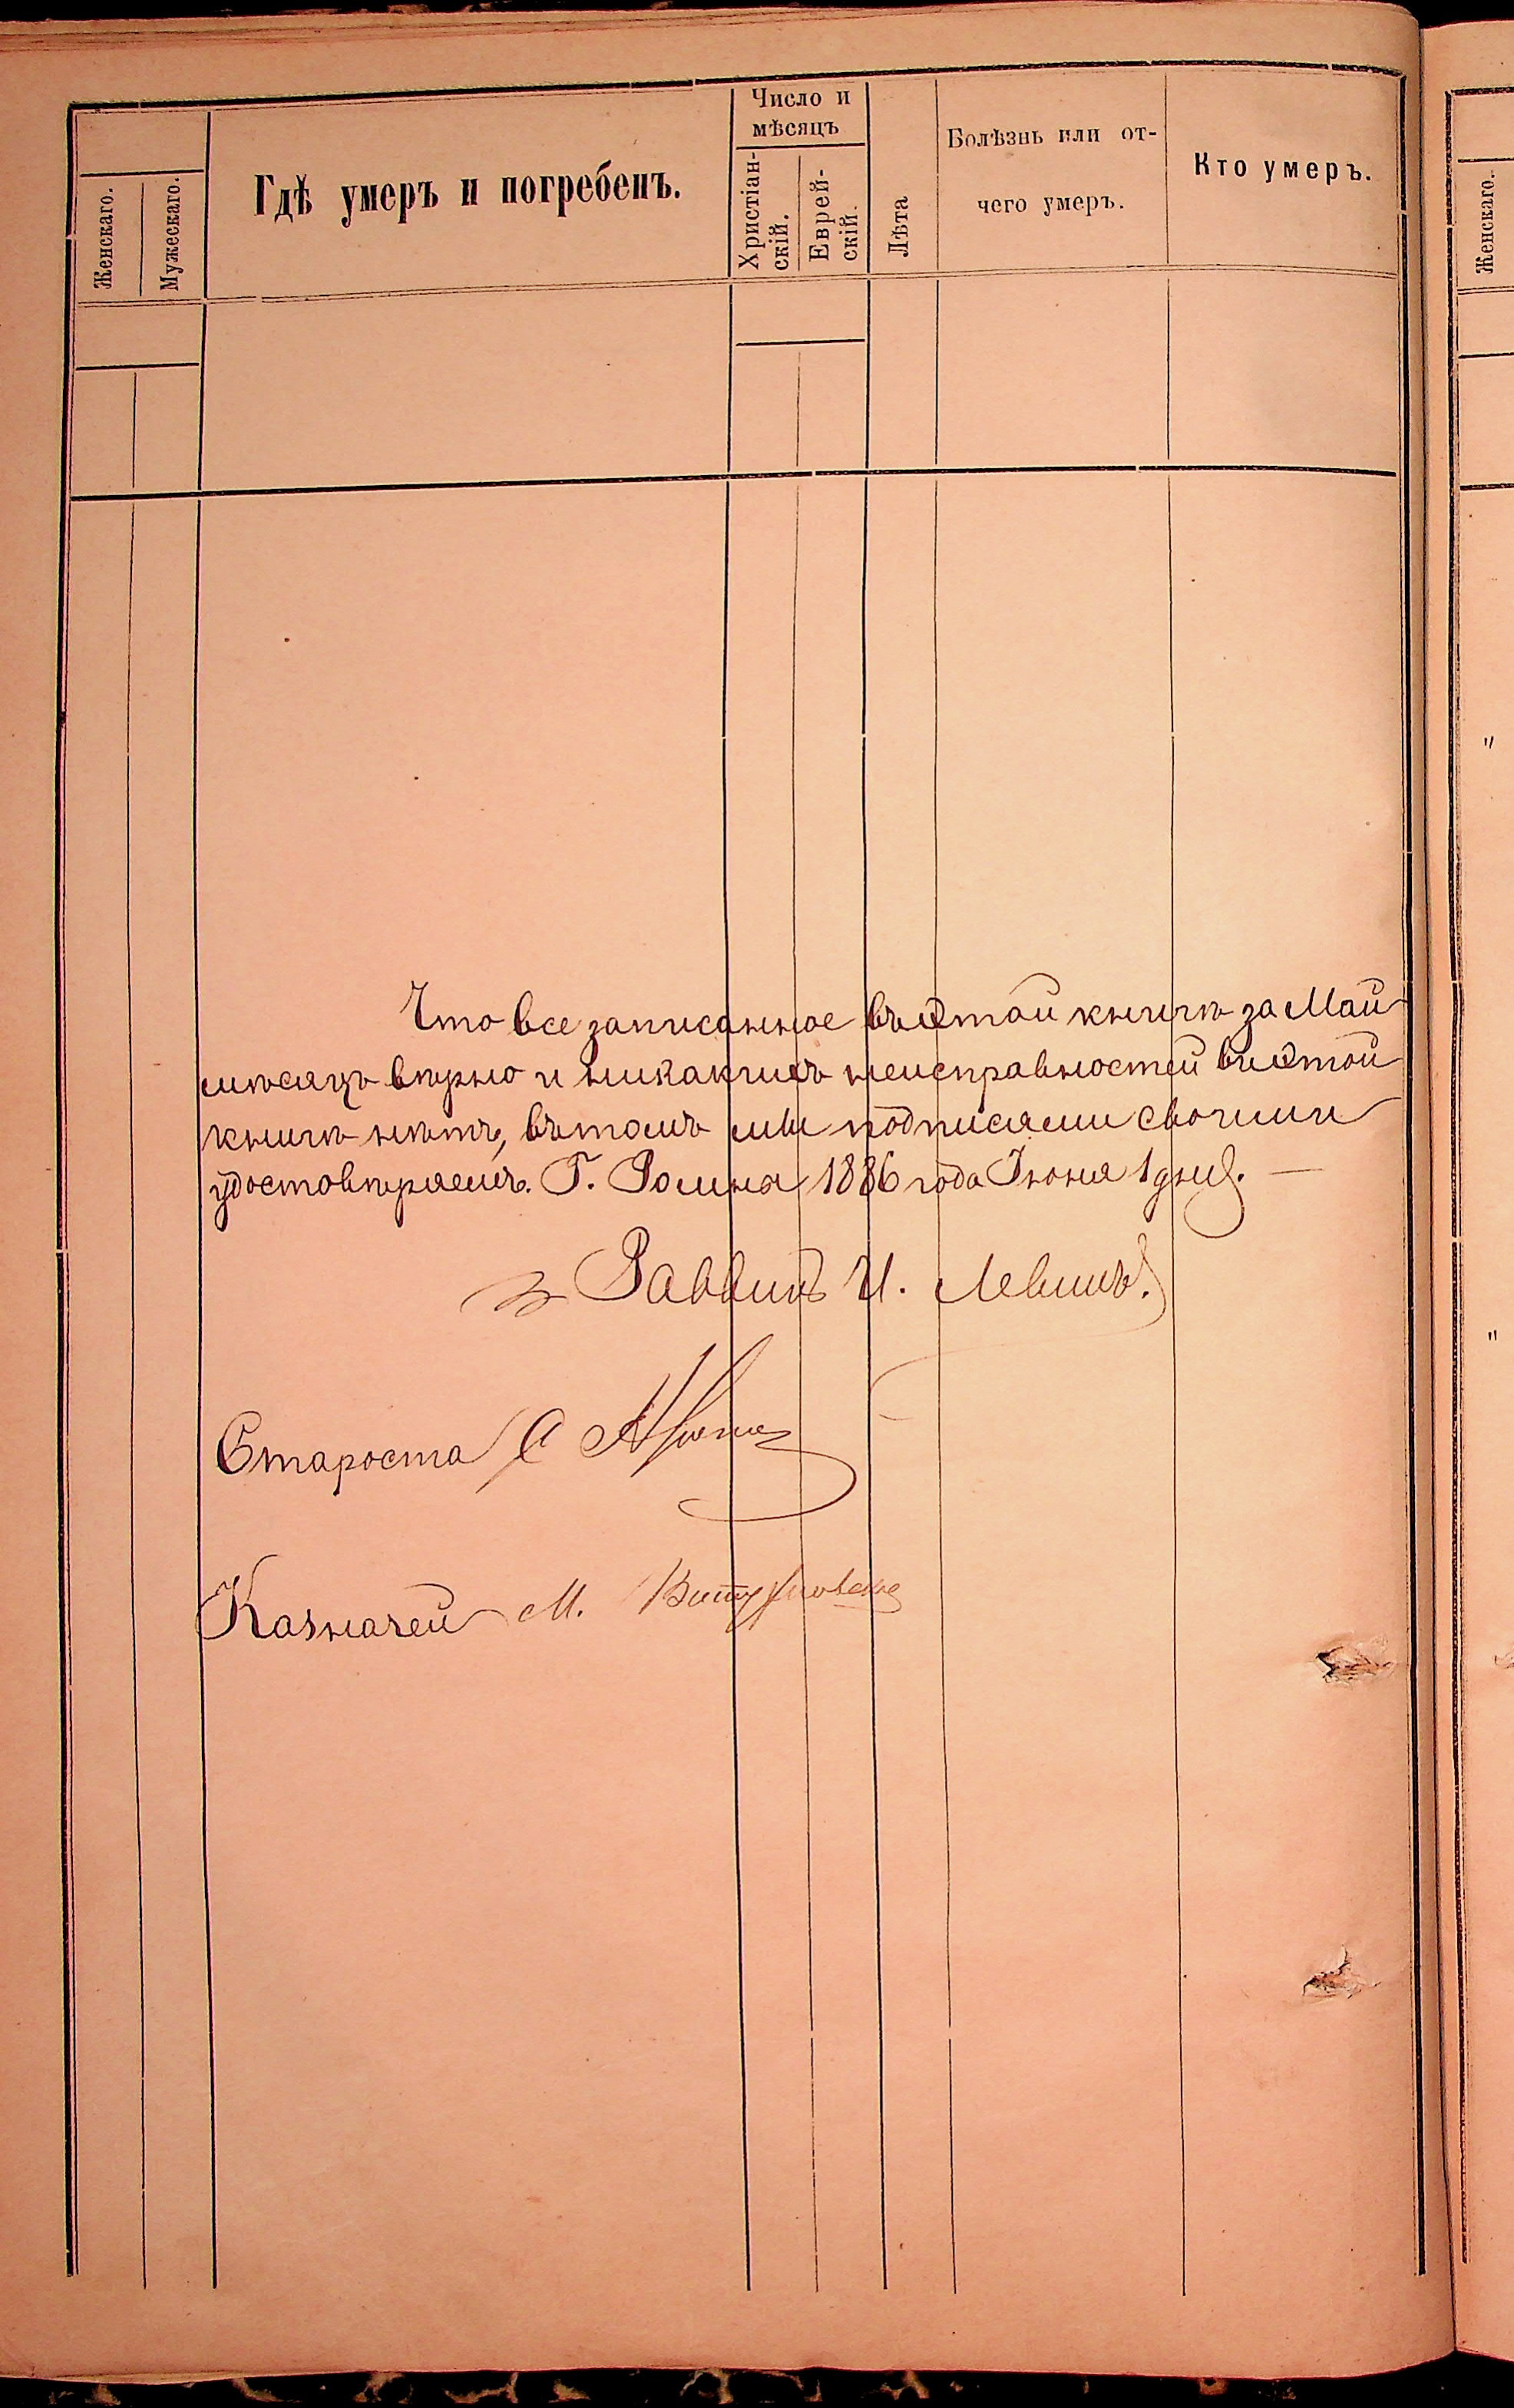 Женскаго.
Мужескаго.
Гдѣ умеръ и погребенъ.
Число и
мѣсяцъ
Христіан-
скій.
Еврей-
скій.
Лѣта
Болѣзнь или от-
чего умеръ.
Кто умеръ.
Женскаго.
Что все записанное въ этой книгѣ за Май
мѣсяцъ вѣрно и никакихъ неисправностей въ этой
книгѣ нѣтъ, въ томъ мы подписями своими
удостовѣряемъ. Г. Ромны 1886 года Іюня 1 дня. —
Раввинъ И. Левинъ.
Староста
Казначей М.
"
"